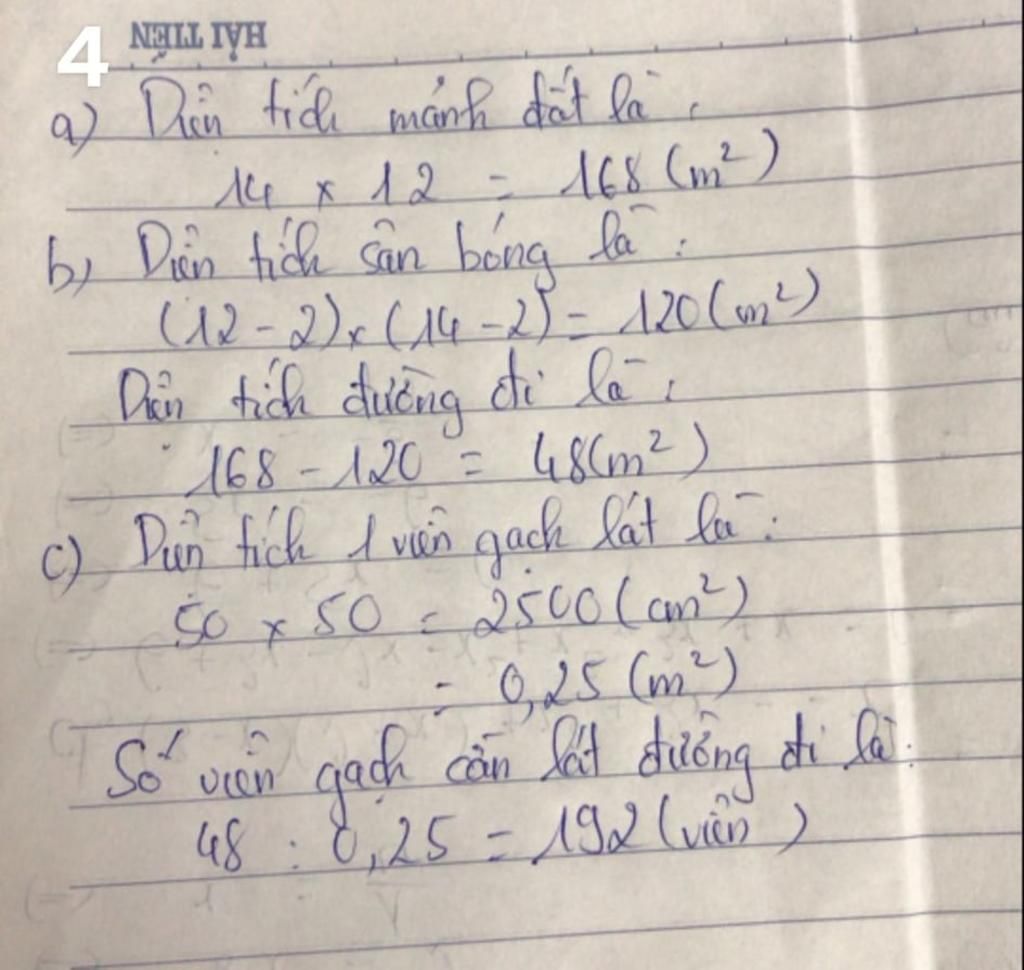 HẢI TIẾN
4
a) Diện tích mảnh đất là:
14 x 12 = 168 (m²)
b) Diện tích sân bóng là:
(12 - 2) x (14 - 2) = 120 (m²)
Diện tích đường đi là:
168 - 120 = 48 (m²)
c) Diện tích 1 viên gạch lát là:
50 x 50 = 2500 (cm²)
= 0,25 (m²)
Số viên gạch cần lát đường đi là:
48 : 0,25 = 192 (viên)